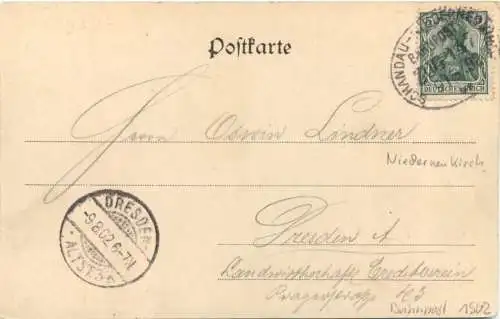 Postkarte
SCHANDAU-NIEDERNEUKIRCH
BAHNPOST
DEUTSCHES REICH
Herrn Oswin Lindner
Niederneukirch
DRESDEN
-9.8.02 6-7N
ALTST.
Dresden A
Landwirthschaftl. Creditverein
Pragerstraße 43
Bahnpost 1902